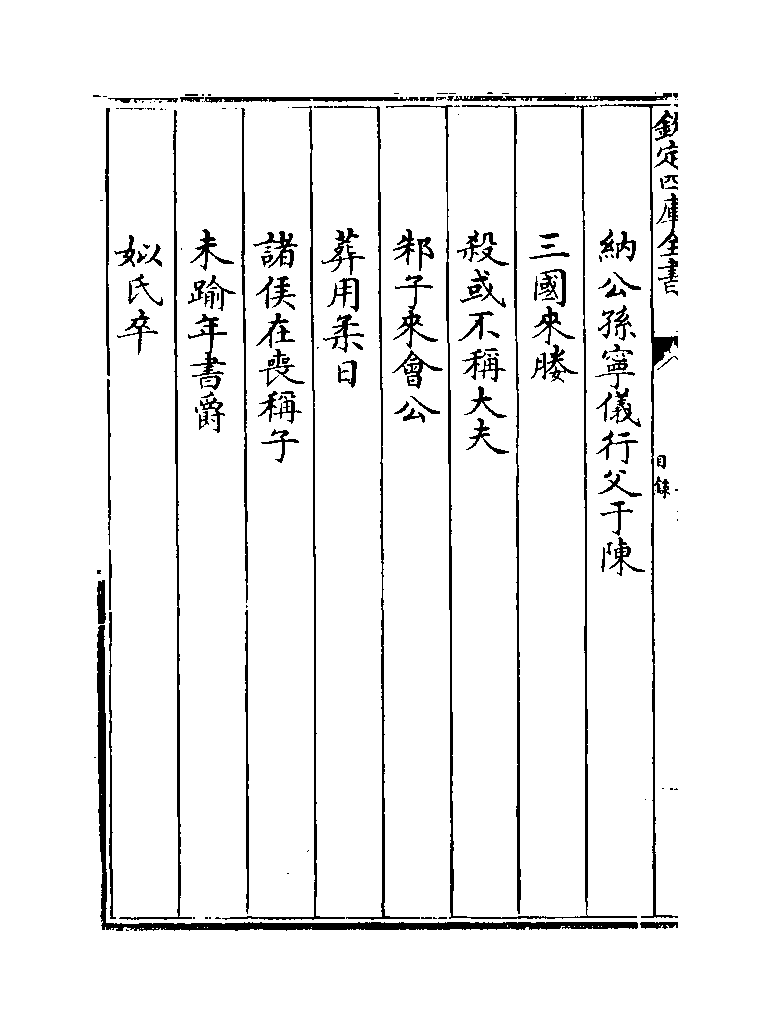 欽定四庫全書
目錄
納公孫寧儀行父于陳
三國來媵
殺或不稱大夫
邾子來會公
葬用柔日
諸侯在喪稱子
未踰年書爵
姒氏卒